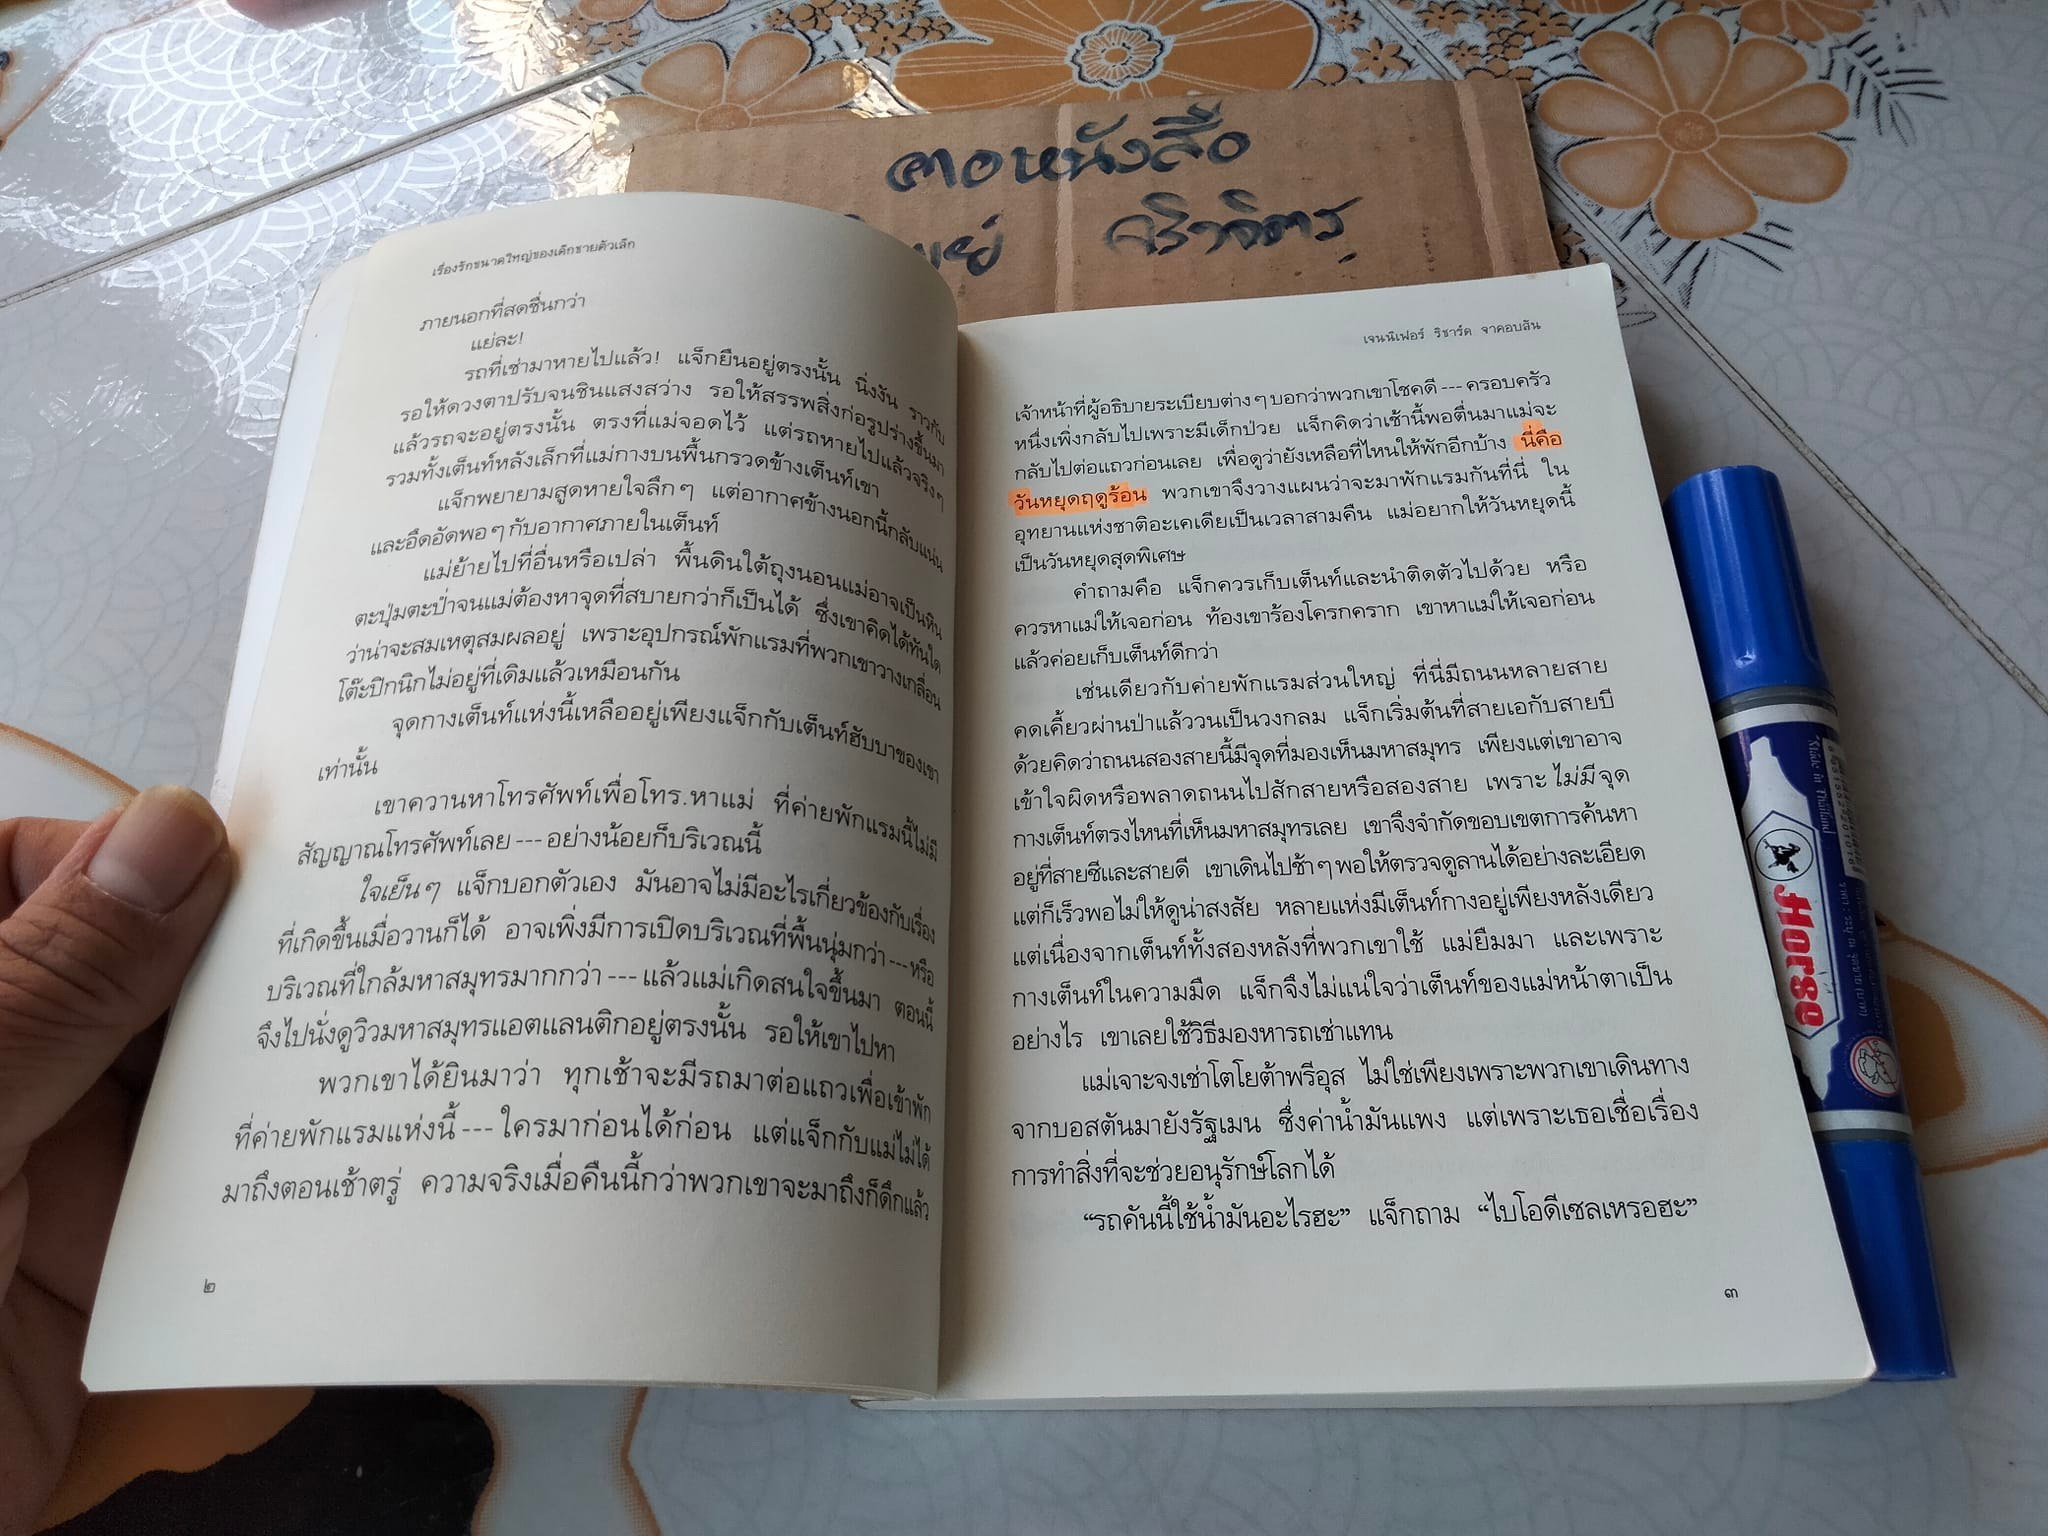 ตอหนังสือ
เรื่องรักขนาดใหญ่ของเด็กชายตัวเล็ก
ภายนอกที่สดชื่นกว่า
แย่ละ!
รถที่เช่ามาหายไปแล้ว! แจ็กยืนอยู่ตรงนั้น นิ่งงัน ราวกับ
รอให้ดวงตาปรับจนชินแสงสว่าง รอให้สรรพสิ่งก่อรูปร่างขึ้นมา
แล้วรถจะอยู่ตรงนั้น ตรงที่แม่จอดไว้ แต่รถหายไปแล้วจริงๆ
รวมทั้งเต็นท์หลังเล็กที่แม่กางบนพื้นกรวดข้างเต็นท์เขา
แจ็กพยายามสูดหายใจลึกๆ แต่อากาศข้างนอกนี้กลับแน่น
และอึดอัดพอๆ กับอากาศภายในเต็นท์
แม่ย้ายไปที่อื่นหรือเปล่า พื้นดินใต้ถุงนอนแม่อาจเป็นหิน
ตะปุ่มตะป่ำจนแม่ต้องหาจุดที่สบายกว่าก็เป็นได้ ซึ่งเขาคิดได้ทันใด
ว่าน่าจะสมเหตุสมผลอยู่ เพราะอุปกรณ์พักแรมที่พวกเขาวางเกลื่อน
โต๊ะปิกนิกไม่อยู่ที่เดิมแล้วเหมือนกัน
จุดกางเต็นท์แห่งนี้เหลืออยู่เพียงแจ็กกับเต็นท์ฮับบาของเขา
เท่านั้น
เขาควานหาโทรศัพท์เพื่อโทร.หาแม่ ที่ค่ายพักแรมนี้ไม่มี
สัญญาณโทรศัพท์เลย --- อย่างน้อยก็บริเวณนี้
ใจเย็นๆ แจ็กบอกตัวเอง มันอาจไม่มีอะไรเกี่ยวข้องกับเรื่อง
ที่เกิดขึ้นเมื่อวานก็ได้ อาจเพิ่งมีการเปิดบริเวณที่พื้นนุ่มกว่า --- หรือ
บริเวณที่ใกล้มหาสมุทรมากกว่า --- แล้วแม่เกิดสนใจขึ้นมา ตอนนี้
จึงไปนั่งดูวิวมหาสมุทรแอตแลนติกอยู่ตรงนั้น รอให้เขาไปหา
พวกเขาได้ยินมาว่า ทุกเช้าจะมีรถมาต่อแถวเพื่อเข้าพัก
ที่ค่ายพักแรมแห่งนี้ --- ใครมาก่อนได้ก่อน แต่แจ็กกับแม่ไม่ได้
มาถึงตอนเช้าตรู่ ความจริงเมื่อคืนนี้กว่าพวกเขาจะมาถึงก็ดึกแล้ว
๒
เจนนิเฟอร์ ริชาร์ด จาคอบสัน
เจ้าหน้าที่ผู้อธิบายระเบียบต่างๆ บอกว่าพวกเขาโชคดี --- ครอบครัว
หนึ่งเพิ่งกลับไปเพราะมีเด็กป่วย แจ็กคิดว่าเช้านี้พอตื่นมาแม่จะ
กลับไปต่อแถวก่อนเลย เพื่อดูว่ายังเหลือที่ไหนให้พักอีกบ้าง นี่คือ
วันหยุดฤดูร้อน พวกเขาจึงวางแผนว่าจะมาพักแรมกันที่นี่ ใน
อุทยานแห่งชาติอะเคเดียเป็นเวลาสามคืน แม่อยากให้วันหยุดนี้
เป็นวันหยุดสุดพิเศษ
คำถามคือ แจ็กควรเก็บเต็นท์และนำติดตัวไปด้วย หรือ
ควรหาแม่ให้เจอก่อน ท้องเขาร้องโครกคราก เขาหาแม่ให้เจอก่อน
แล้วค่อยเก็บเต็นท์ดีกว่า
เช่นเดียวกับค่ายพักแรมส่วนใหญ่ ที่นี่มีถนนหลายสาย
คดเคี้ยวผ่านป่าแล้ววนเป็นวงกลม แจ็กเริ่มต้นที่สายเอกับสายบี
ด้วยคิดว่าถนนสองสายนี้มีจุดที่มองเห็นมหาสมุทร เพียงแต่เขาอาจ
เข้าใจผิดหรือพลาดถนนไปสักสายหรือสองสาย เพราะ ไม่มี จุด
กางเต็นท์ตรงไหนที่เห็นมหาสมุทรเลย เขาจึงจำกัดขอบเขตการค้นหา
อยู่ที่สายซีและสายดี เขาเดินไปช้าๆ พอให้ตรวจดูลานได้อย่างละเอียด
แต่ก็เร็วพอไม่ให้ดูน่าสงสัย หลายแห่งมีเต็นท์กางอยู่เพียงหลังเดียว
แต่เนื่องจากเต็นท์ทั้งสองหลังที่พวกเขาใช้ แม่ยืมมา และเพราะ
กางเต็นท์ในความมืด แจ็กจึงไม่แน่ใจว่าเต็นท์ของแม่หน้าตาเป็น
อย่างไร เขาเลยใช้วิธีมองหารถเช่าแทน
แม่เจาะจงเช่าโตโยต้าพรีอุส ไม่ใช่เพียงเพราะพวกเขาเดินทาง
จากบอสตันมายังรัฐเมน ซึ่งค่าน้ำมันแพง แต่เพราะเธอเชื่อเรื่อง
การทำสิ่งที่จะช่วยอนุรักษ์โลกได้
“รถคันนี้ใช้น้ำมันอะไรฮะ” แจ็กถาม “ไบโอดีเซลเหรอฮะ”
๓
Horse
Made in Thailand